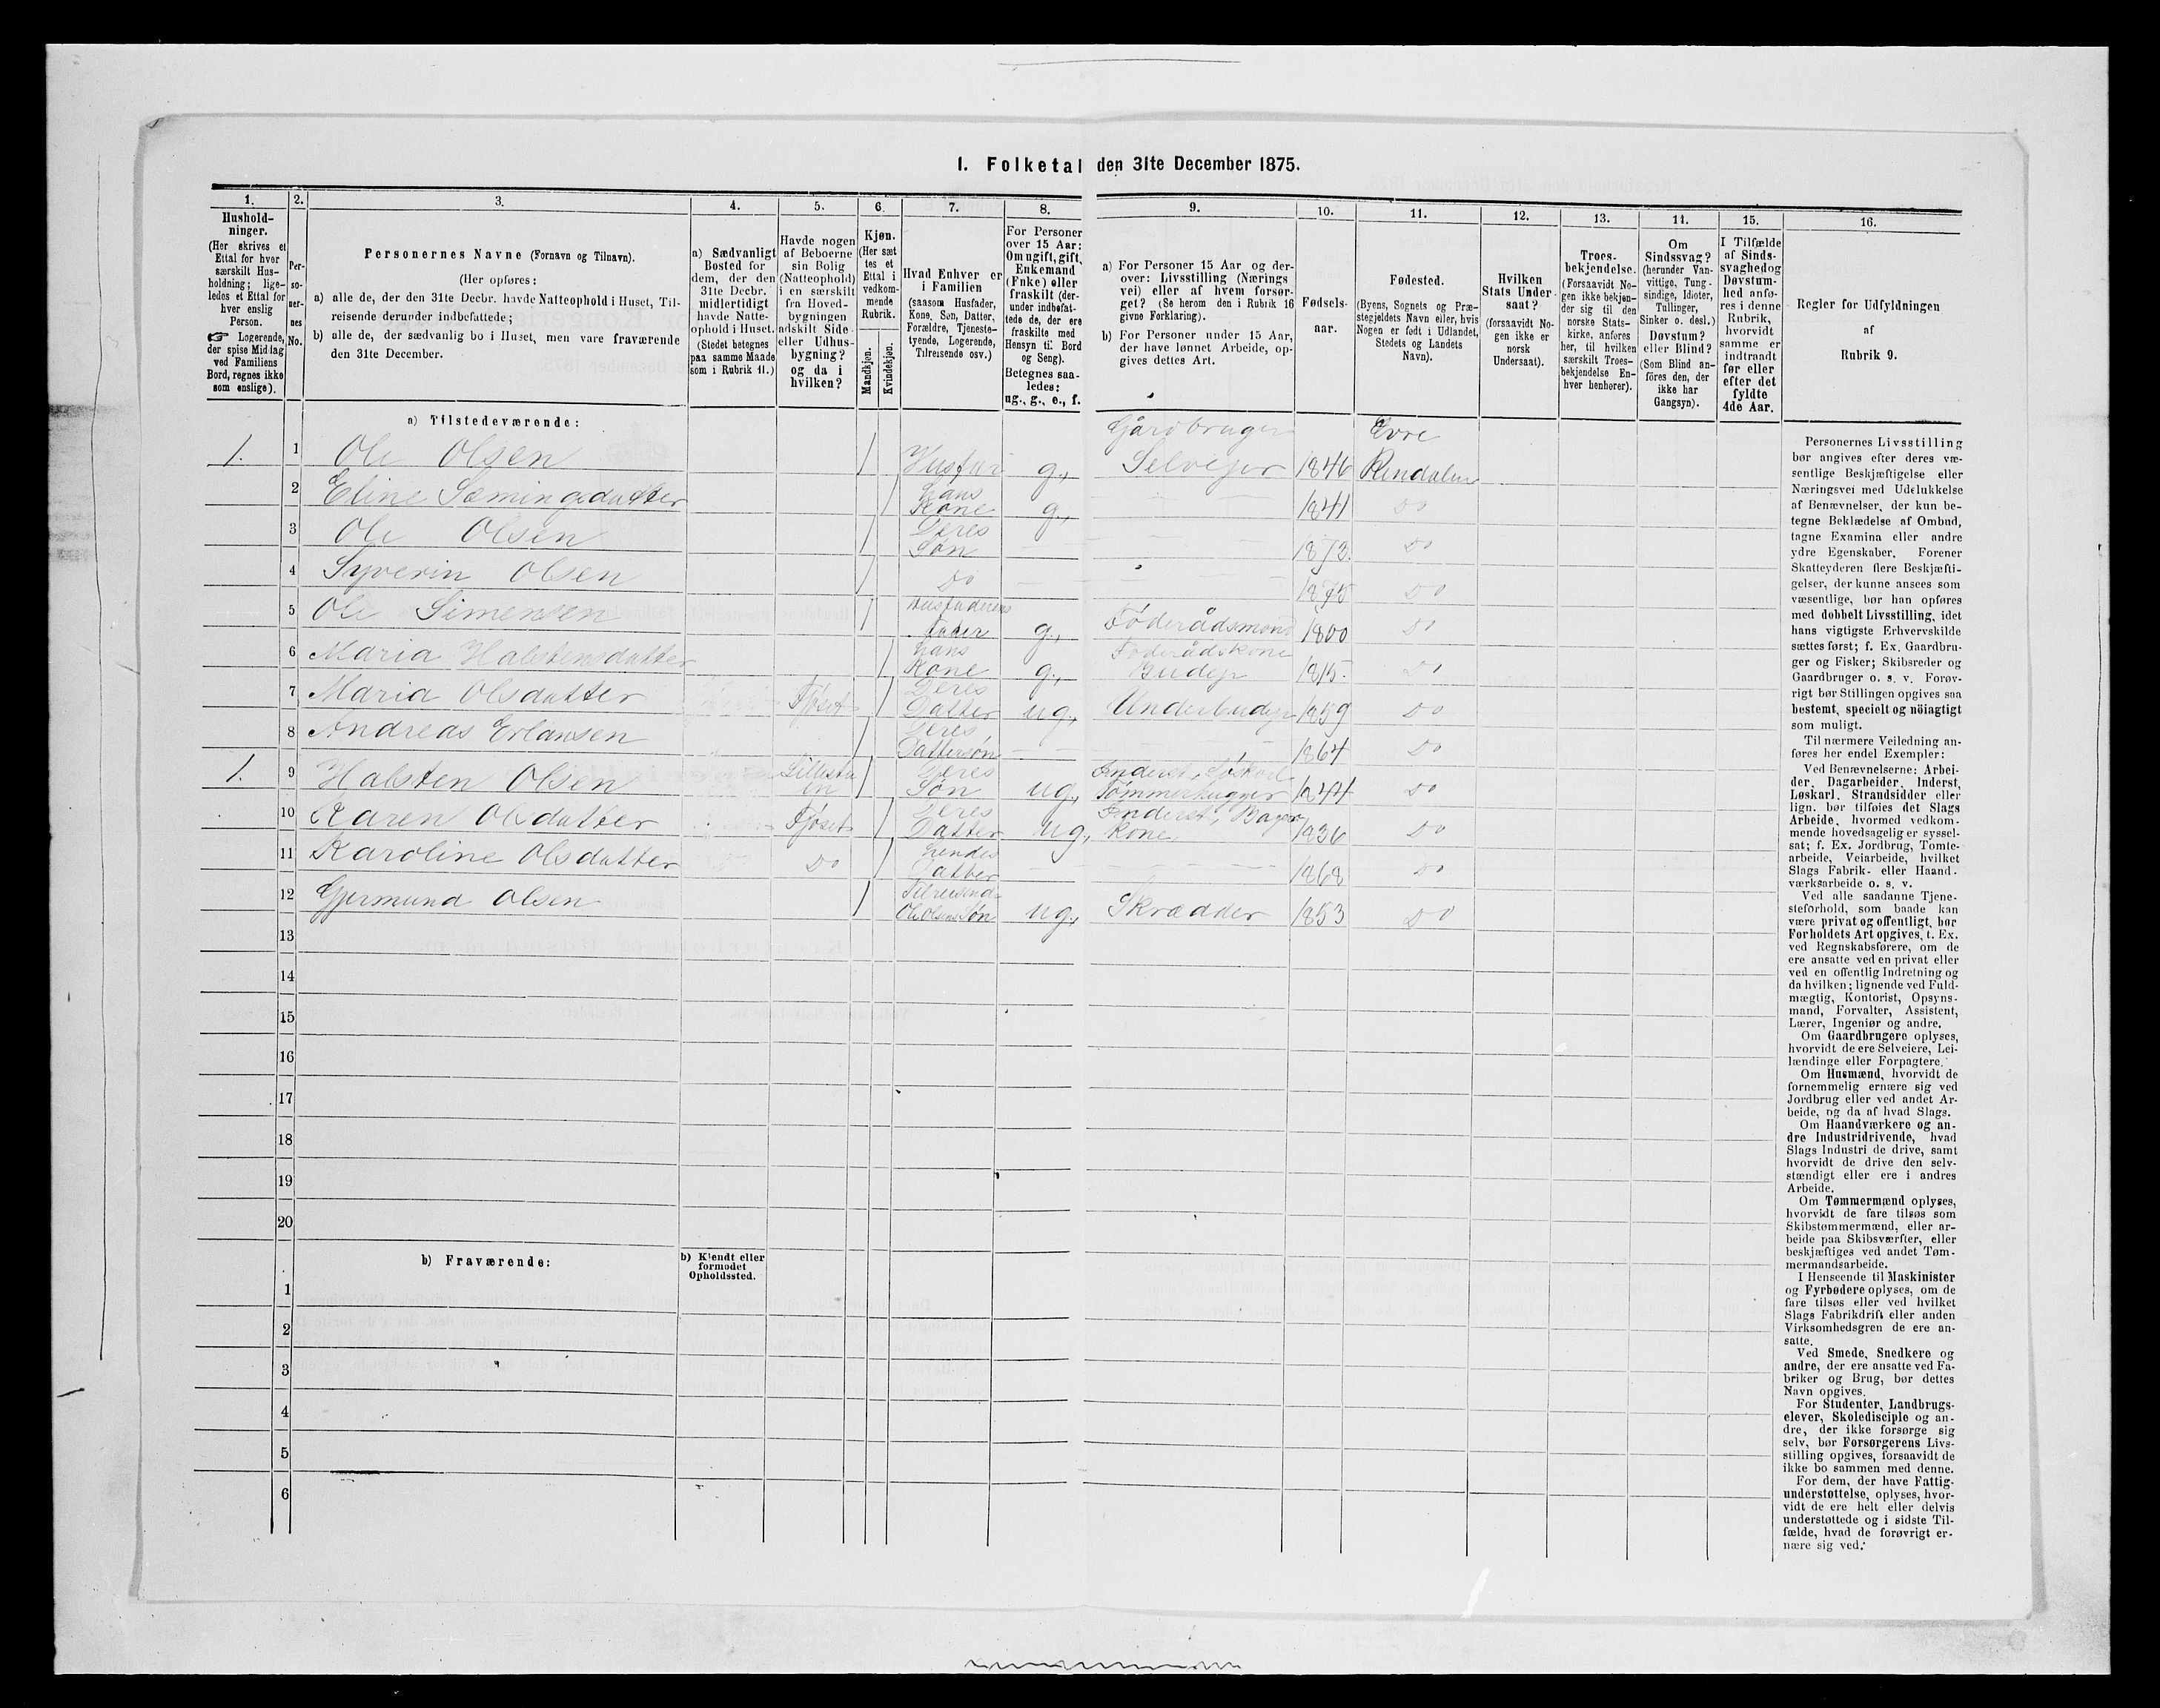 1. Folketal den 31te December 1875.
1. 2. 3. 4. 5. 6. 7. 8. 9. 10. 11. 12. 13. 14. 15. 16.
Hushold-
ninger.
(Her skrives et
Ettal for hver
særskilt Hus-
holdning; lige-
ledes et Ettal for
hver enslig
Person.
☞ Logerende,
der spise Middag
ved Familiens
Bord, regnes ikke
som enslige).
Per-
so-
ner-
nes
No.
Personernes Navne (Fornavn og Tilnavn).
(Her opføres:
a) alle de, der den 31te Decbr. havde Natteophold i Huset, Til-
reisende derunder indbefattede;
b) alle de, der sædvanlig bo i Huset, men vare fraværende
den 31te December.
a) Sædvanligt
Bosted for
dem, der den
31te Decbr.
midlertidigt
havde Natte-
ophold i Huset.
(Stedet betegnes
paa samme Maade
som i Rubrik 11.)
Havde nogen
af Beboerne
sin Bolig
(Natteophold)
i en særskilt
fra Hoved-
bygningen
adskilt Side-
eller Udhus-
bygning?
og da i
hvilken?
Kjøn.
(Her sæt
tes et
Ettal i
vedkom-
mende
Rubrik.
Mandkjøn.
Kvindekjøn.
Hvad Enhver er
i Familien
(saasom Husfader,
Kone, Søn, Datter,
Forældre, Tjeneste-
tyende, Logerende,
Tilreisende osv.)
For Personer
over 15 Aar:
Om ugift, gift,
Enkemand
(Enke) eller
fraskilt (der-
under indbefat-
tede de, der ere
fraskilte med
Hensyn til Bord
og Seng).
Betegnes saa-
ledes:
ug., g., e., f.
a) For Personer 15 Aar og der-
over: Livsstilling (Nærings
vei) eller af hvem forsør-
get? (Se herom den i Rubrik 16
givne Forklaring).
b) For Personer under 15 Aar,
der have lønnet Arbeide, op-
gives dettes Art.
Fødsels-
aar.
Fødested.
(Byens, Sognets og Præ-
stegjeldets Navn eller, hvis
Nogen er født i Udlandet,
Stedets og Landets
Navn).
Hvilken
Stats Under-
saat?
(forsaavidt No-
gen ikke er
norsk
Undersaat).
Troes-
bekjendelse.
(Forsaavidt No-
gen ikke bekjen-
der sig til den
norske Stats-
kirke, anføres
her, til hvilken
særskilt Troes-
bekjendelse En-
hver henhører).
Om
Sindssvag?
(herunder Van-
vittige, Tung-
sindige, Idioter,
Tullinger,
Sinker o. desl.)
Døvstum?
eller Blind?
(Som Blind an-
føres den, der
ikke har
Gangsyn).
I Tilfælde
af Sinds-
svaghedog
Døvstum-
hed anfø-
res i denne
Rubrik,
hvorvidt
samme er
indtraadt
før eller
efter det
fyldte
4de Aar.
Regler for Udfyldningen
af
Rubrik 9.
a) Tilstedeværende:
1. 1 Ole Olsen Husfar g., Gårdbruger Selvejer 1846 Evre Rendalen
2 Eline Semingsdatter Hans Kone g., 1841 Do
3 Ole Olsen Deres Søn 1873. Do
4 Syverin Olsen Do 1875 Do
5 Ole Simensen Husfaderens Fader g., Føderådsmond 1800 Do
6 Maria Halstensdatter Hans Kone g., Føderådskone Budeje 1815. Do
7 Maria Olsdatter Fjøset Deres Datter ug., Underbudeje 1859 Do
8 Andreas Erlansen Deres Dattersøn 1864 Do
1. 9 Halsten Olsen Lillestuen Deres Søn ug., Inderst, Løskarl Tømmerhugger 1844 Do
10 Karen Olsdatter Fjøset Deres Datter ug., Inderst, Kone. 1836 Do
11 Karoline Olsdatter Do Hendes Datter 1868 Do
12 Gjermund Olsen Tilreisende Ole Olsens Søn ug., Skrædder 1853 Do
13
14
15
16
17
18
19
20
b) Fraværende:
b) Kjendt eller
formodet
Opholdssted.
1
2
3
4
5
6
Personernes Livsstilling
bør angives efter deres væ-
sentlige Beskjæftigelse eller
Næringsvei med Udelukkelse
af Benævnelser, der kun be-
tegne Beklædelse af Ombud,
tagne Examina eller andre
ydre Egenskaber. Forener
Skatteyderen flere Beskjæfti-
gelser, der kunne ansees som
væsentlige, bør han opføres
med dobbelt Livsstilling, idet
hans vigtigste Erhvervskilde
sættes først; f. Ex. Gaardbru-
ger og Fisker; Skibsreder og
Gaardbruger o. s. v. Forøv-
rigt bør Stillingen opgives saa
bestemt, specielt og nöiagtigt
som muligt.
Til nærmere Veiledning an-
føres her endel Exempler:
Ved Benævnelserne: Arbei-
der, Dagarbeider, Inderst,
Løskarl, Strandsidder eller
lign. bør tilføies det Slags
Arbeide, hvormed vedkom-
mende hovedsagelig er syssel-
sat; f. Ex. Jordbrug, Tomte-
arbeide, Veiarbeide, hvilket
Slags Fabrik- eller Haand-
værksarbeide o. s. v.
Ved alle saadanne Tjene-
steforhold, som baade kan
være privat og offentligt, bør
Forholdets Art opgives, t. Ex.
ved Regnskabsførere, om de
ere ansatte ved en privat eller
ved en offentlig Indretning og
da hvilken; lignende ved Fuld-
mægtig, Kontorist, Opsyns-
mand, Forvalter, Assistent,
Lærer, Ingeniør og andre.
Om Gaardbrugere oplyses,
hvorvidt de ere Selveiere, Lei-
lændinge eller Forpagtere.
Om Husmænd, hvorvidt de
fornemmelig ernære sig ved
Jordbrug eller ved andet Ar-
beide, og da af hvad Slags.
Om Haandværkere og an-
dre Industridrivende, hvad
Slags Industri de drive, samt
hvorvidt de drive den selv-
stændigt eller ere i andres
Arbeide.
Om Tømmermænd oplyses,
hvorvidt de fare tilsøs som
Skibstømmermænd, eller ar-
beide paa Skibsværfter, eller
beskjæftiges ved andet Tøm-
mermandsarbeide.
I Henseende til Maskinister
og Fyrbødere oplyses, om de
fare tilsøs eller ved hvilket
Slags Fabrikdrift eller anden
Virksomhedsgren de ere an-
satte.
Ved Smede, Snedkere og
andre, der ere ansatte ved Fa-
briker og Brug, bør dettes
Navn opgives.
For Studenter, Landbrugs-
elever, Skoledisciple og an-
dre, der ikke forsørge sig
selv, bør Forsørgerens Livs-
stilling opgives, forsaavidt de
ikke bo sammen med denne.
For dem, der have Fattig-
understøttelse, oplyses, hvor-
vidt de ere helt eller delvis
understøttede og i sidste Til-
fælde, hvad de forøvrigt er-
nære sig ved.